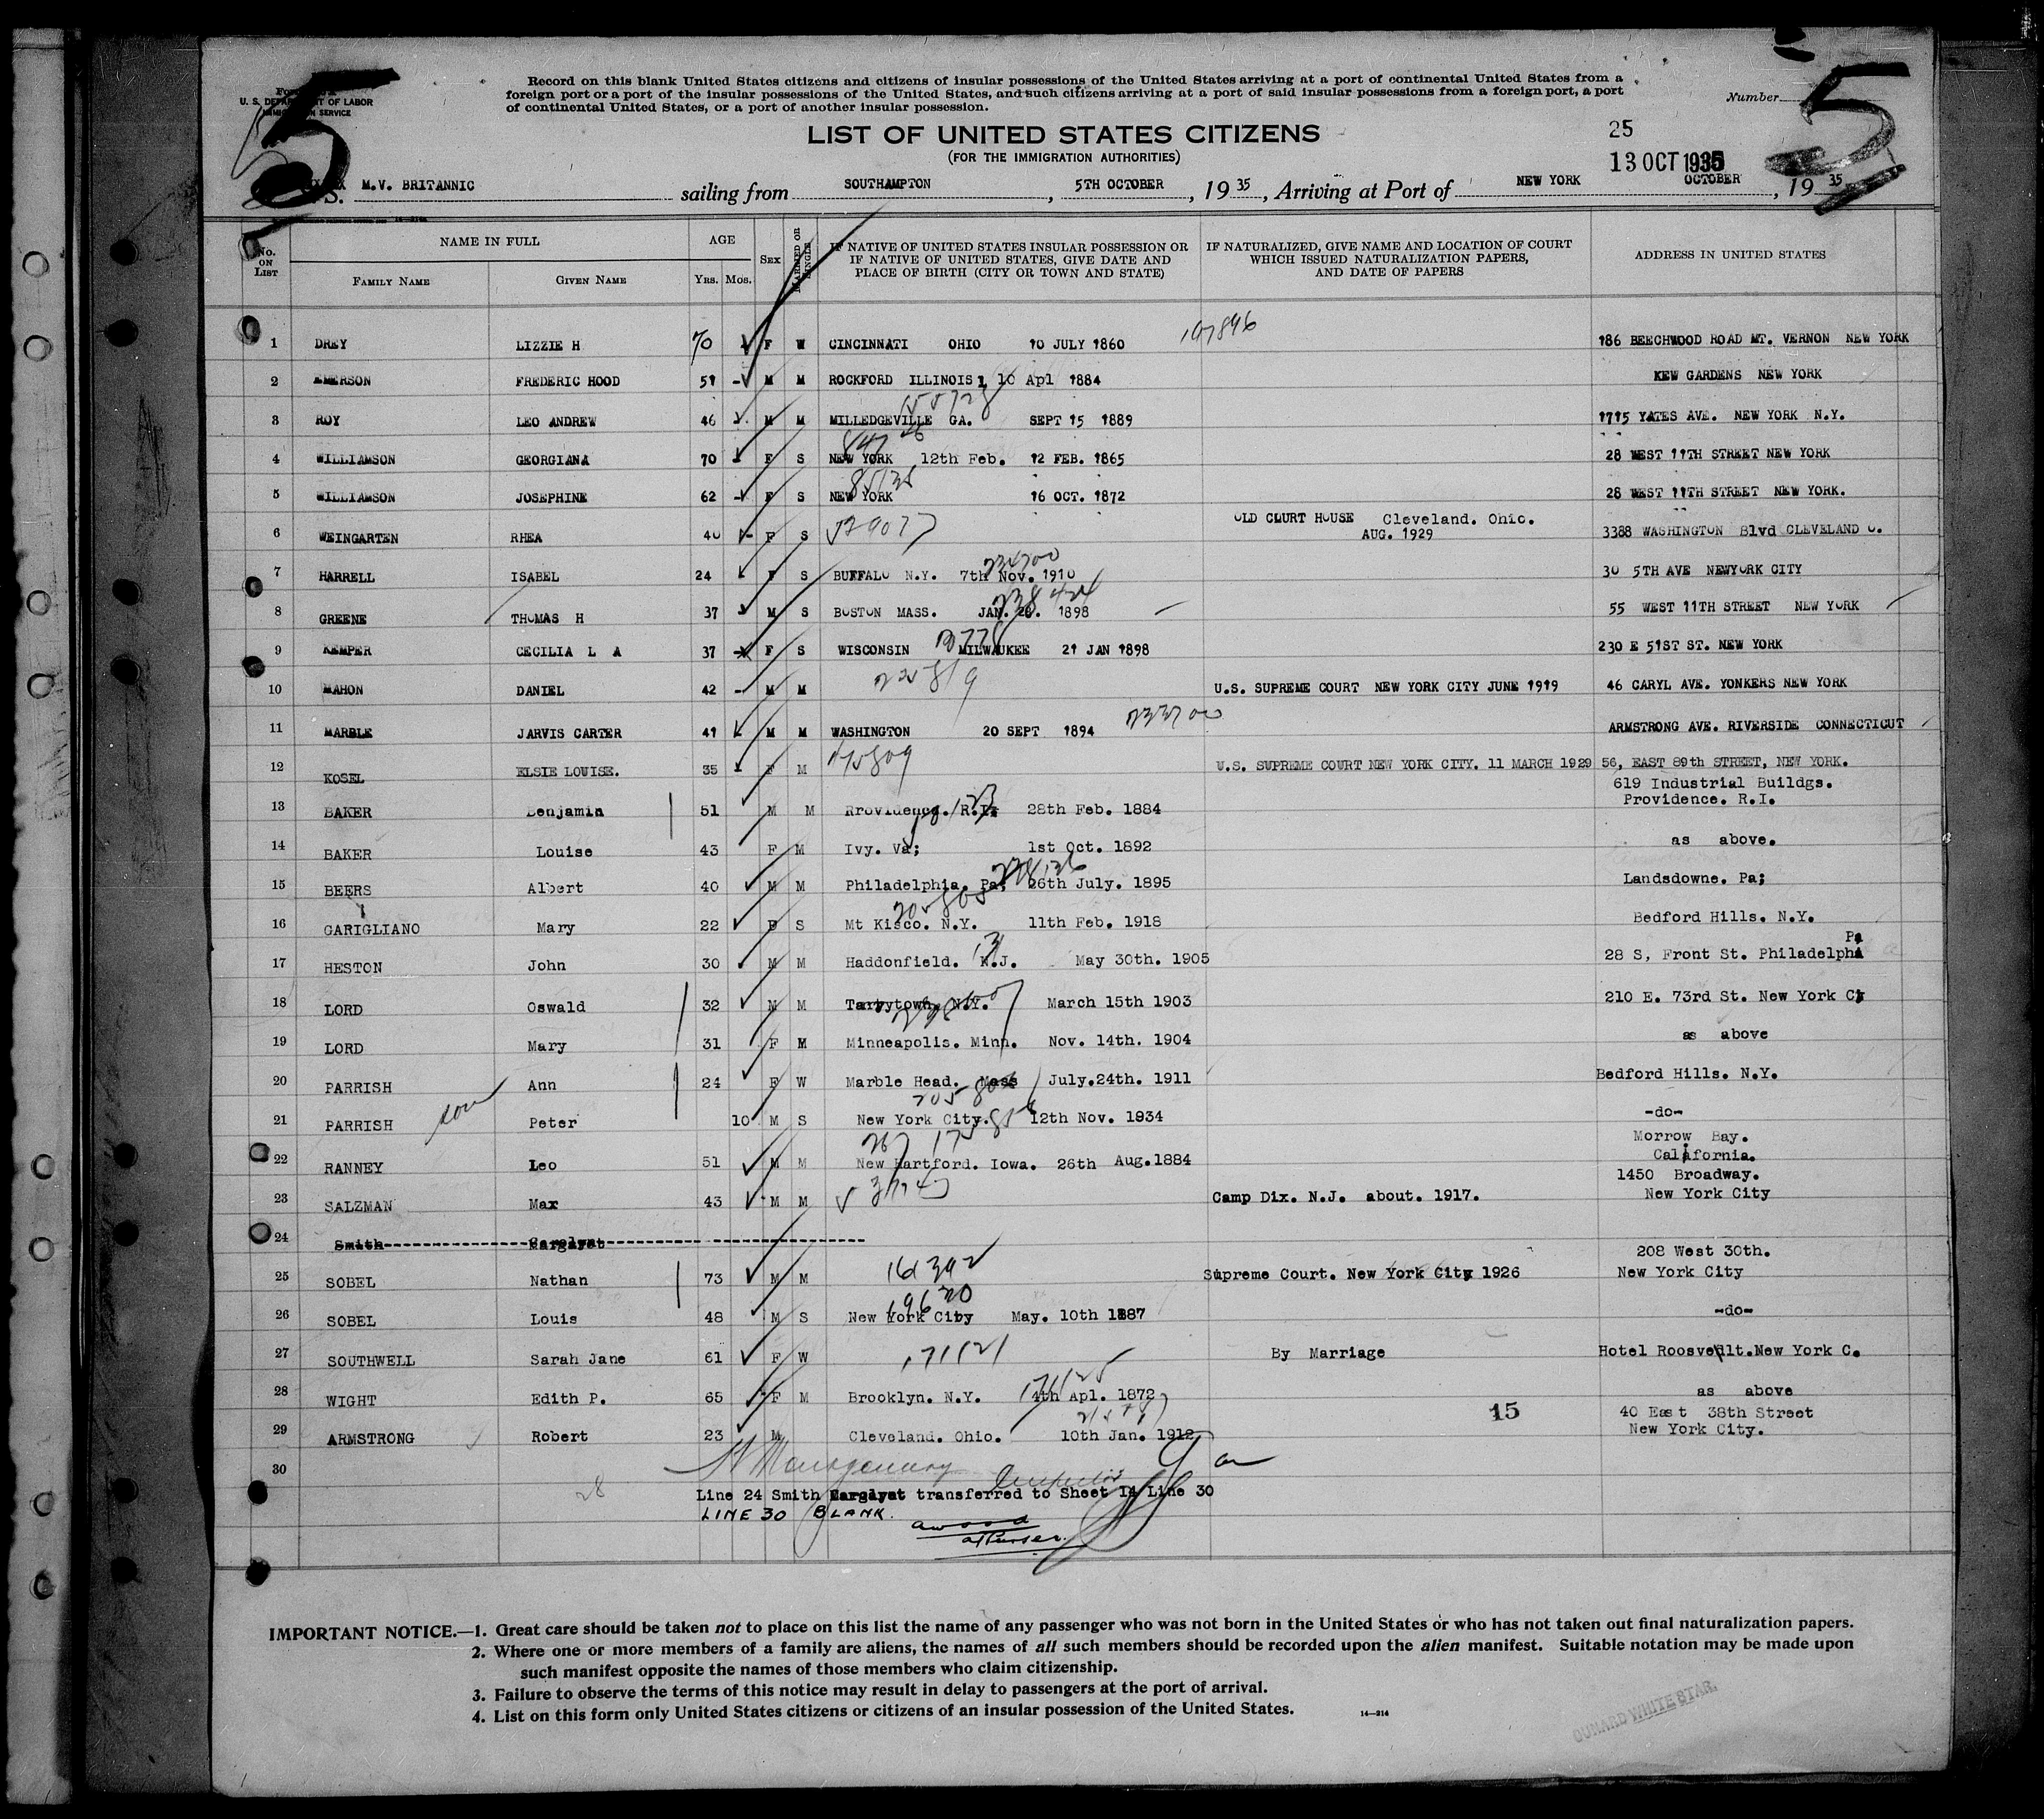 Record on this blank United States citizens and citizens of insular possessions of the United States arriving at a port of continental United States from a
foreign port or a port of the insular possessions of the United States, and such citizens arriving at a port of said insular possessions from a foreign port, a port
of continental United States, or a port of another insular possession.
U. S. DEPARTMENT OF LABOR
5
Number
5
LIST OF UNITED STATES CITIZENS
(FOR THE IMMIGRATION AUTHORITIES)
25
13 OCT 1935
M.V. BRITANNIC sailing from SOUTHAMPTON, 5TH OCTOBER, 19 35, Arriving at Port of NEW YORK OCTOBER, 19 35
No. ON LIST NAME IN FULL AGE SEX MARRIED OR SINGLE IF NATIVE OF UNITED STATES INSULAR POSSESSION OR IF NATIVE OF UNITED STATES, GIVE DATE AND PLACE OF BIRTH (CITY OR TOWN AND STATE) IF NATURALIZED, GIVE NAME AND LOCATION OF COURT WHICH ISSUED NATURALIZATION PAPERS, AND DATE OF PAPERS ADDRESS IN UNITED STATES
FAMILY NAME GIVEN NAME YRS. MOS.
1 DREY LIZZIE H 70 F W CINCINNATI OHIO 10 JULY 1860 197896 186 BEECHWOOD ROAD MT. VERNON NEW YORK
2 EMERSON FREDERIC HOOD 51 - M M ROCKFORD ILLINOIS 10 Apl 1884 KEW GARDENS NEW YORK
3 ROY LEO ANDREW 46 M M MILLEDGEVILLE GA. SEPT 15 1889 1715 YATES AVE. NEW YORK N.Y.
4 WILLIAMSON GEORGIANA 70 F S NEW YORK 12th Feb. 12 FEB. 1865 28 WEST 11TH STREET NEW YORK
5 WILLIAMSON JOSEPHINE 62 F S NEW YORK 16 OCT. 1872 28 WEST 11TH STREET NEW YORK.
6 WEINGARTEN RHEA 40 F S OLD COURT HOUSE Cleveland. Ohio. AUG. 1929 3388 WASHINGTON Blvd CLEVELAND O.
7 HARRELL ISABEL 24 F S BUFFALO N.Y. 7th Nov. 1910 30 5TH AVE NEWYORK CITY
8 GREENE THOMAS H 37 M S BOSTON MASS. JAN. 28. 1898 55 WEST 11TH STREET NEW YORK
9 KEMPER CECILIA L A 37 F S WISCONSIN MILWAUKEE 21 JAN 1898 230 E 51ST ST. NEW YORK
10 MAHON DANIEL 42 - M M 225819 U.S. SUPREME COURT NEW YORK CITY JUNE 1919 46 CARYL AVE. YONKERS NEW YORK
11 MARBLE JARVIS CARTER 41 M M WASHINGTON 20 SEPT 1894 ARMSTRONG AVE. RIVERSIDE CONNECTICUT
12 KOSEL ELSIE LOUISE. 35 F M U.S. SUPREME COURT NEW YORK CITY. 11 MARCH 1929 56, EAST 89th STREET, NEW YORK.
13 BAKER Benjamin 51 M M Rrovidence. R.I. 28th Feb. 1884 619 Industrial Buildgs. Providence. R.I.
14 BAKER Louise 43 F M Ivy. Va; 1st Oct. 1892 as above.
15 BEERS Albert 40 M M Philadelphia. Pa; 26th July. 1895 Landsdowne. Pa;
16 GARIGLIANO Mary 22 F S Mt Kisco. N.Y. 11th Feb. 1918 Bedford Hills. N.Y.
17 HESTON John 30 M M Haddonfield. N.J. May 30th. 1905 28 S, Front St. Philadelpha Pa
18 LORD Oswald 32 M M Tarrytown. N.Y. March 15th 1903 210 E. 73rd St. New York Cy
19 LORD Mary 31 F M Minneapolis. Minn. Nov. 14th. 1904 as above
20 PARRISH Ann 24 F W Marble Head. Mass July.24th. 1911 Bedford Hills. N.Y.
21 PARRISH son Peter 10 M S New York City. 12th Nov. 1934 -do-
22 RANNEY Leo 51 M M New Hartford. Iowa. 26th Aug.1884 Morrow Bay. California.
23 SALZMAN Max 43 M M Camp Dix. N.J. about. 1917. 1450 Broadway. New York City
24 Smith
25 SOBEL Nathan 73 M M 161392 Supreme Court. New York City 1926 208 West 30th. New York City
26 SOBEL Louis 48 M S New York City May. 10th 1887 -do-
27 SOUTHWELL Sarah Jane 61 F W 171121 By Marriage Hotel Roosvelt.New York C.
28 WIGHT Edith P. 65 F M Brooklyn. N.Y. 4th Apl. 1872 171125 as above
29 ARMSTRONG Robert 23 M Cleveland. Ohio. 10th Jan. 1912 15 40 East 38th Street New York City.
30
28
Line 24 Smith transferred to Sheet 14 Line 30
LINE 30 BLANK.
IMPORTANT NOTICE.—1. Great care should be taken not to place on this list the name of any passenger who was not born in the United States or who has not taken out final naturalization papers.
2. Where one or more members of a family are aliens, the names of all such members should be recorded upon the alien manifest. Suitable notation may be made upon
such manifest opposite the names of those members who claim citizenship.
3. Failure to observe the terms of this notice may result in delay to passengers at the port of arrival.
4. List on this form only United States citizens or citizens of an insular possession of the United States.
14—214
CUNARD WHITE STAR.